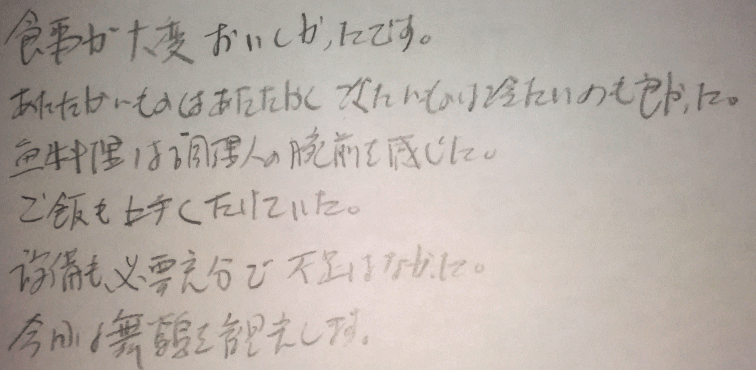 食事が大変おいしかったです。
あたたかいものはあたたかく 冷たいものは冷たいのも良かった。
魚料理は調理人の腕前を感じた。
ご飯も上手くたけていた。
設備も必要充分で不足はなかった。
今回は舞鶴を観光します。